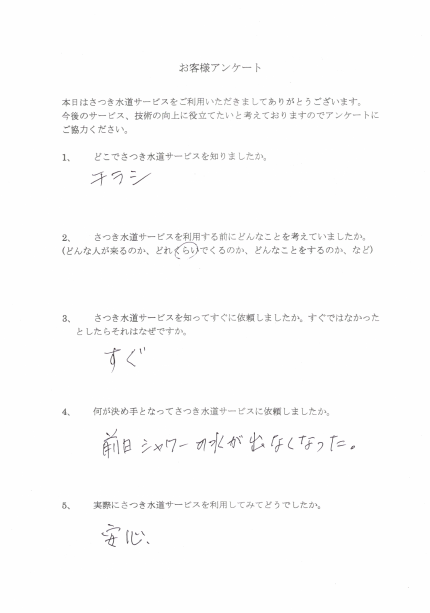 お客様アンケート
本日はさつき水道サービスをご利用いただきましてありがとうございます。
今後のサービス、技術の向上に役立てたいと考えておりますのでアンケートに
ご協力ください。
1、 どこでさつき水道サービスを知りましたか。
チラシ
2、 さつき水道サービスを利用する前にどんなことを考えていましたか。
(どんな人が来るのか、どれくらいでくるのか、どんなことをするのか、など)
3、 さつき水道サービスを知ってすぐに依頼しましたか。すぐではなかった
としたらそれはなぜですか。
すぐ
4、 何が決め手となってさつき水道サービスに依頼しましたか。
前日シャワーの水が出なくなった。
5、 実際にさつき水道サービスを利用してみてどうでしたか。
安心、